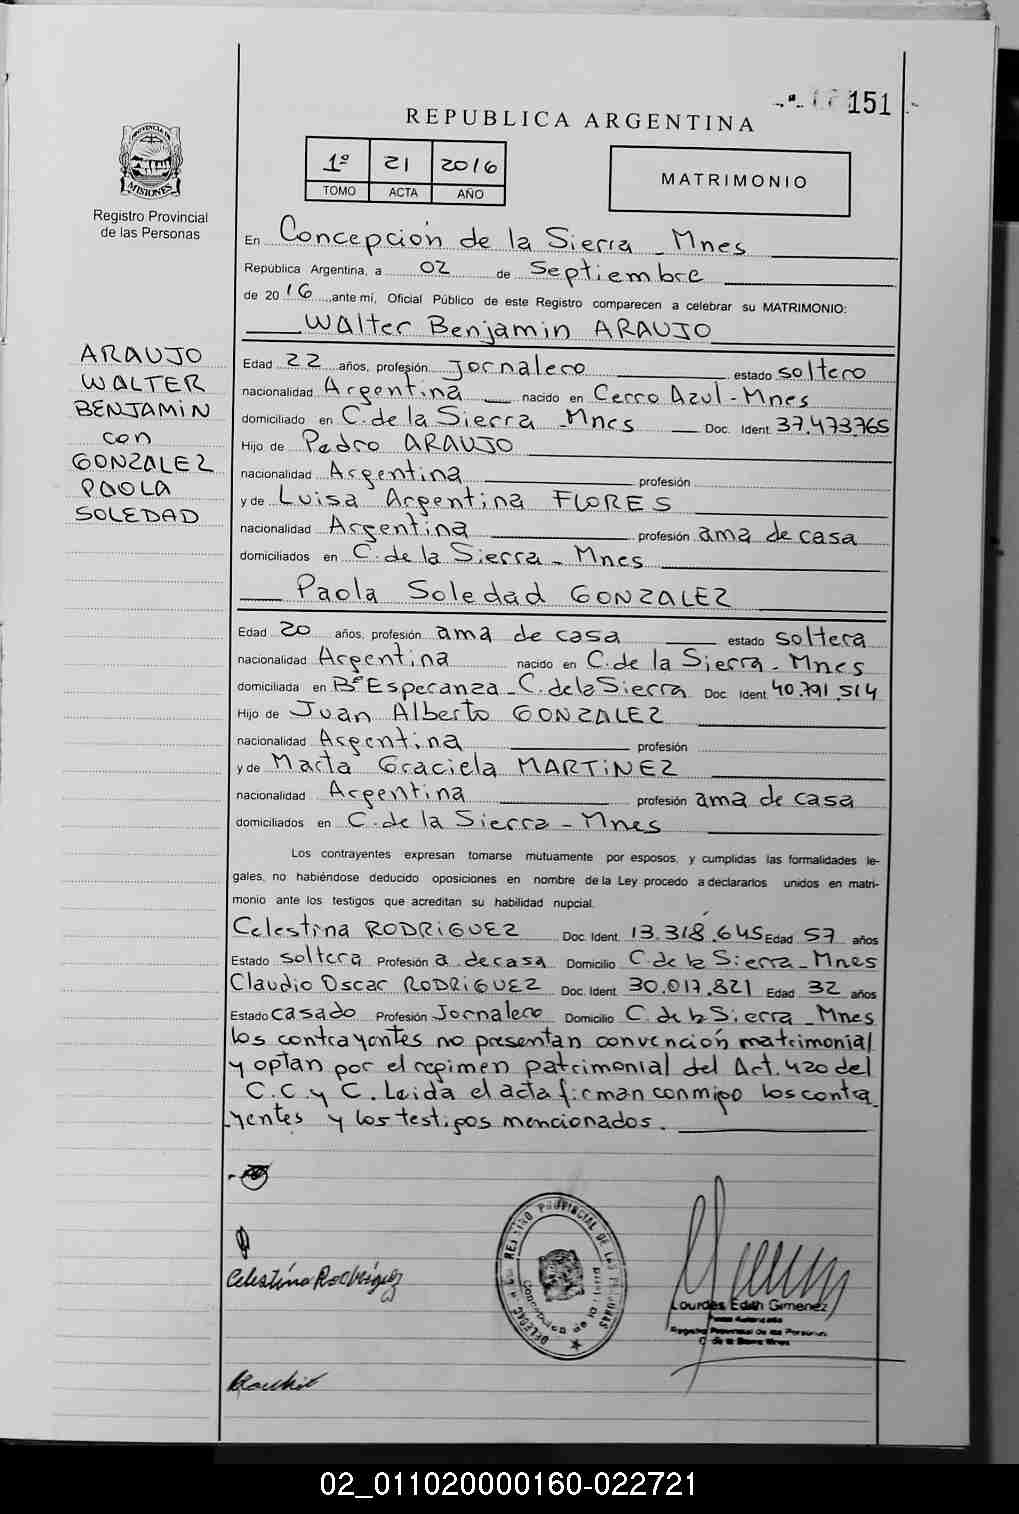 151
REPUBLICA ARGENTINA
PROVINCIA DE
MISIONES
Registro Provincial
de las Personas
1º 21 2016
TOMO ACTA AÑO
MATRIMONIO
En Concepción de la Sierra - Mnes
República Argentina, a 02 de Septiembre
de 2016, ante mí, Oficial Público de este Registro comparecen a celebrar su MATRIMONIO:
Walter Benjamin ARAUJO
ARAUJO
WALTER
BENJAMIN
con
GONZALEZ
PAOLA
SOLEDAD
Edad 22 años, profesión Jornalero estado soltero
nacionalidad Argentina nacido en Cerro Azul - Mnes
domiciliado en C. de la Sierra - Mnes Doc. Ident. 37.473.765
Hijo de Pedro ARAUJO
nacionalidad Argentina profesión
y de Luisa Argentina FLORES
nacionalidad Argentina profesión ama de casa
domiciliados en C. de la Sierra - Mnes
Paola Soledad GONZALEZ
Edad 20 años, profesión ama de casa estado soltera
nacionalidad Argentina nacido en C. de la Sierra - Mnes
domiciliada en Bº Esperanza - C. de la Sierra Doc. Ident. 40.791.514
Hijo de Juan Alberto GONZALEZ
nacionalidad Argentina profesión
y de Marta Graciela MARTINEZ
nacionalidad Argentina profesión ama de casa
domiciliados en C. de la Sierra - Mnes
Los contrayentes expresan tomarse mutuamente por esposos, y cumplidas las formalidades le-
gales, no habiéndose deducido oposiciones en nombre de la Ley procedo a declararlos unidos en matri-
monio ante los testigos que acreditan su habilidad nupcial.
Celestina RODRIGUEZ Doc. Ident. 13.318.645 Edad 57 años
Estado soltera Profesión a. de casa Domicilio C. de la Sierra - Mnes
Claudio Oscar RODRIGUEZ Doc. Ident. 30.017.821 Edad 32 años
Estado casado Profesión Jornalero Domicilio C. de la Sierra - Mnes
los contrayentes no presentan convención matrimonial
y optan por el regimen patrimonial del Art. 420 del
C.C. y C. Leida el acta firman conmigo los contra
yentes y los testigos mencionados.
Celestina Rodriguez
REGISTRO PROVINCIAL DE LAS PERSONAS
Lourdes Edith Gimenez
Registro Provincial de las Personas
C. de la Sierra Mnes
02_011020000160-022721